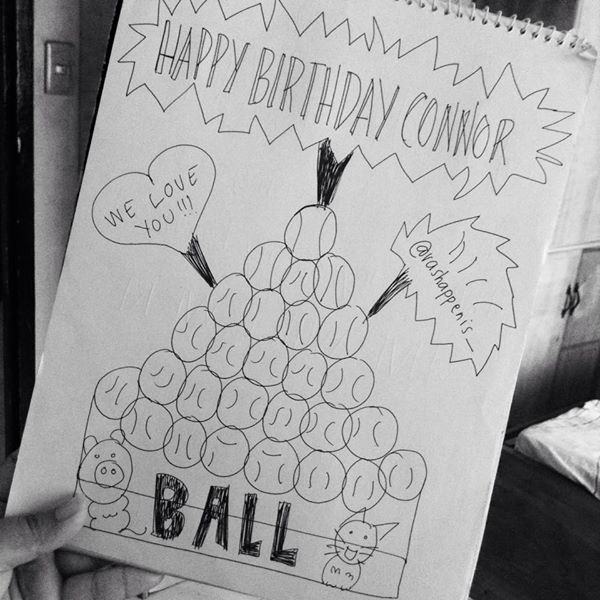 HAPPY BIRTHDAY CONNOR
WE LOVE
YOU!!!
@vashappenis_
BALL